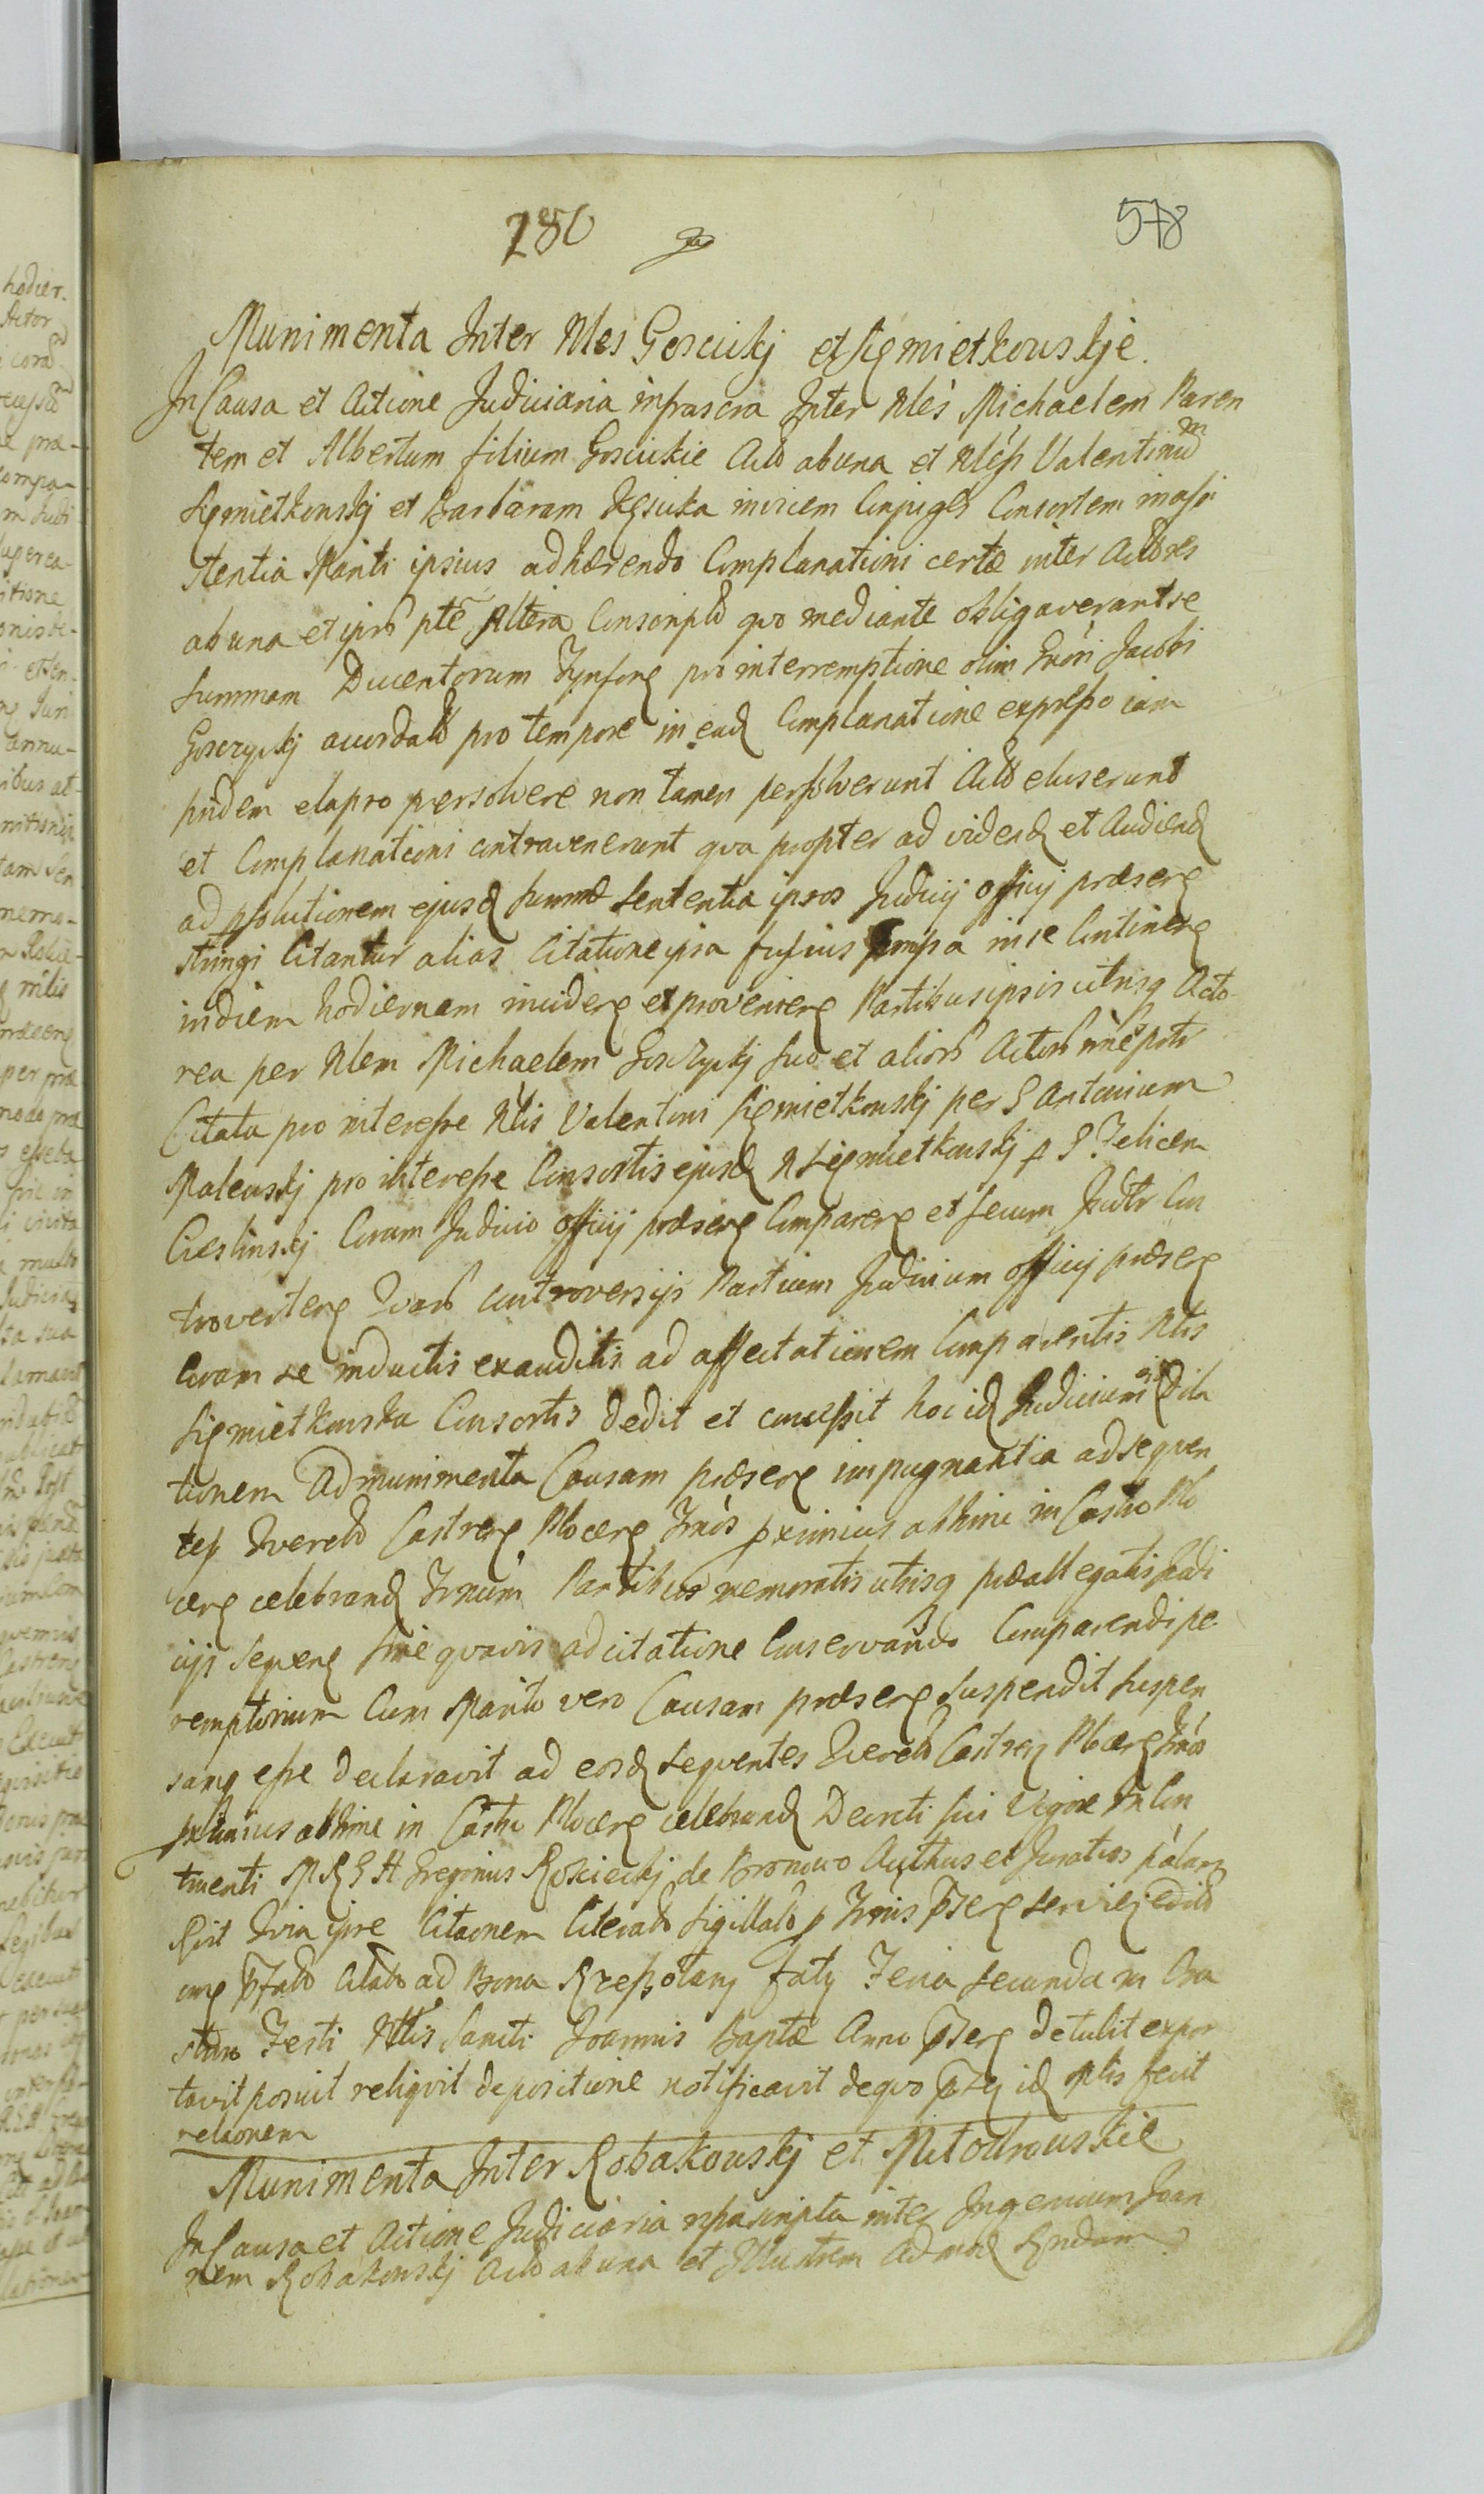 280 578
Munimenta Inter Nles Goscickj et Siemietkowskje.
In Causa et Actione Judiciaria infrascra Inter Nles Michaelem Paren
tem et Albertum filium Goscickie Acto ab una et Nles Valentinum
Siemietkowskj et Barbaram invicem Conjuges Consortem in assi
stentia Mariti ipsius adhærendo Complanationi certæ inter Actores
ab una et ipsos pte Altera Conscripto quo mediante obligaverant se
summam Ducentorum Tynfong pro interremptione olim Gnosi Jacobi
Gosczyckj accordato pro tempore in ead Complanatione expresso iam
pridem elapso persolvere non tamen persolverunt Acto eluserunt
et Complanationi contravenerunt qua propter ad vidend et Audiend
ad psolutionem ejusd summæ sententia ipsos Judicij officij præseng
stringi Citantur alias Citatione ipsa fusius in se Contineng
in diem hodiernam incideng et proveniens Partibus ipsis utrisq Acto
rea per Nlem Michaelem Gosczyckj suo et aliors Actors nne
Citata pro interesse Nlis Valentini Siemietkowskj per G Antonium
Malewskj pro interesse Consortis ejusd N Siemietkowskj p G Felicem
Cieslinskj Coram Judicio officij præseng Compareng et secum Con
troverteng Quars controversijs Partium Judicium officij præseng
coram se inductis exauditis ad affectationem Comparentis Nlis
Siemietkowska Consortis dedit et concessit hoc id Judicium ei Dila
tionem Ad munimenta Causam præseng impugnantia ad sequen
tes Querelo Castreng Ploceng Tmos pximius abhinc in Castro Plo
ceng celebrand Trnum Partibus memoratis utrisq præallegatis
sequeng sine quavis adcitatione Conservando Comparendi pe
remptorium Cum Marito vero Causam præseng suspendit suspen
samq esse declaravit ad eosd sequentes Querelo Castreng Ploceng Tmos
pximius abhinc in Castro Ploceng celebrand Decreti sui Vigore In Con
tinenti M R G H Gregorius Roscieckj de Bronowo Authus et Juratus palam
Rcit Qria ipse Citaonem Literato Sigillato p Trmis ppseng edito
cong pfato Citato ad Bona faty Feria secunda in Cra
stino Festi Nttis Sancti Joannis Baptæ Anno ppseng detulit expor
tavit posuit reliqvit depositione notificavit de quo id oplis fecit
relaonem
Munimenta Inter Robakowskj et Mitodrowskie
In Causa et Actione Judiciaria infrascripta inter Ingenuum Joan
nem Robakowskj Acto ab una et Illustrem Admod Rndum